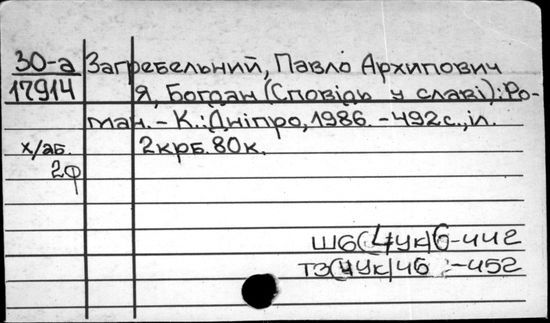 30-а Загребельний, Павло Архипович
17914 Я, Богдан (Сповідь у славі): Ро-
ман. - К.: Дніпро, 1986. - 492 с., іл.
х/аб. 2крб. 80к.
2ф
Ш6(4Ук)6-442
Т3(4Ук)46 -452